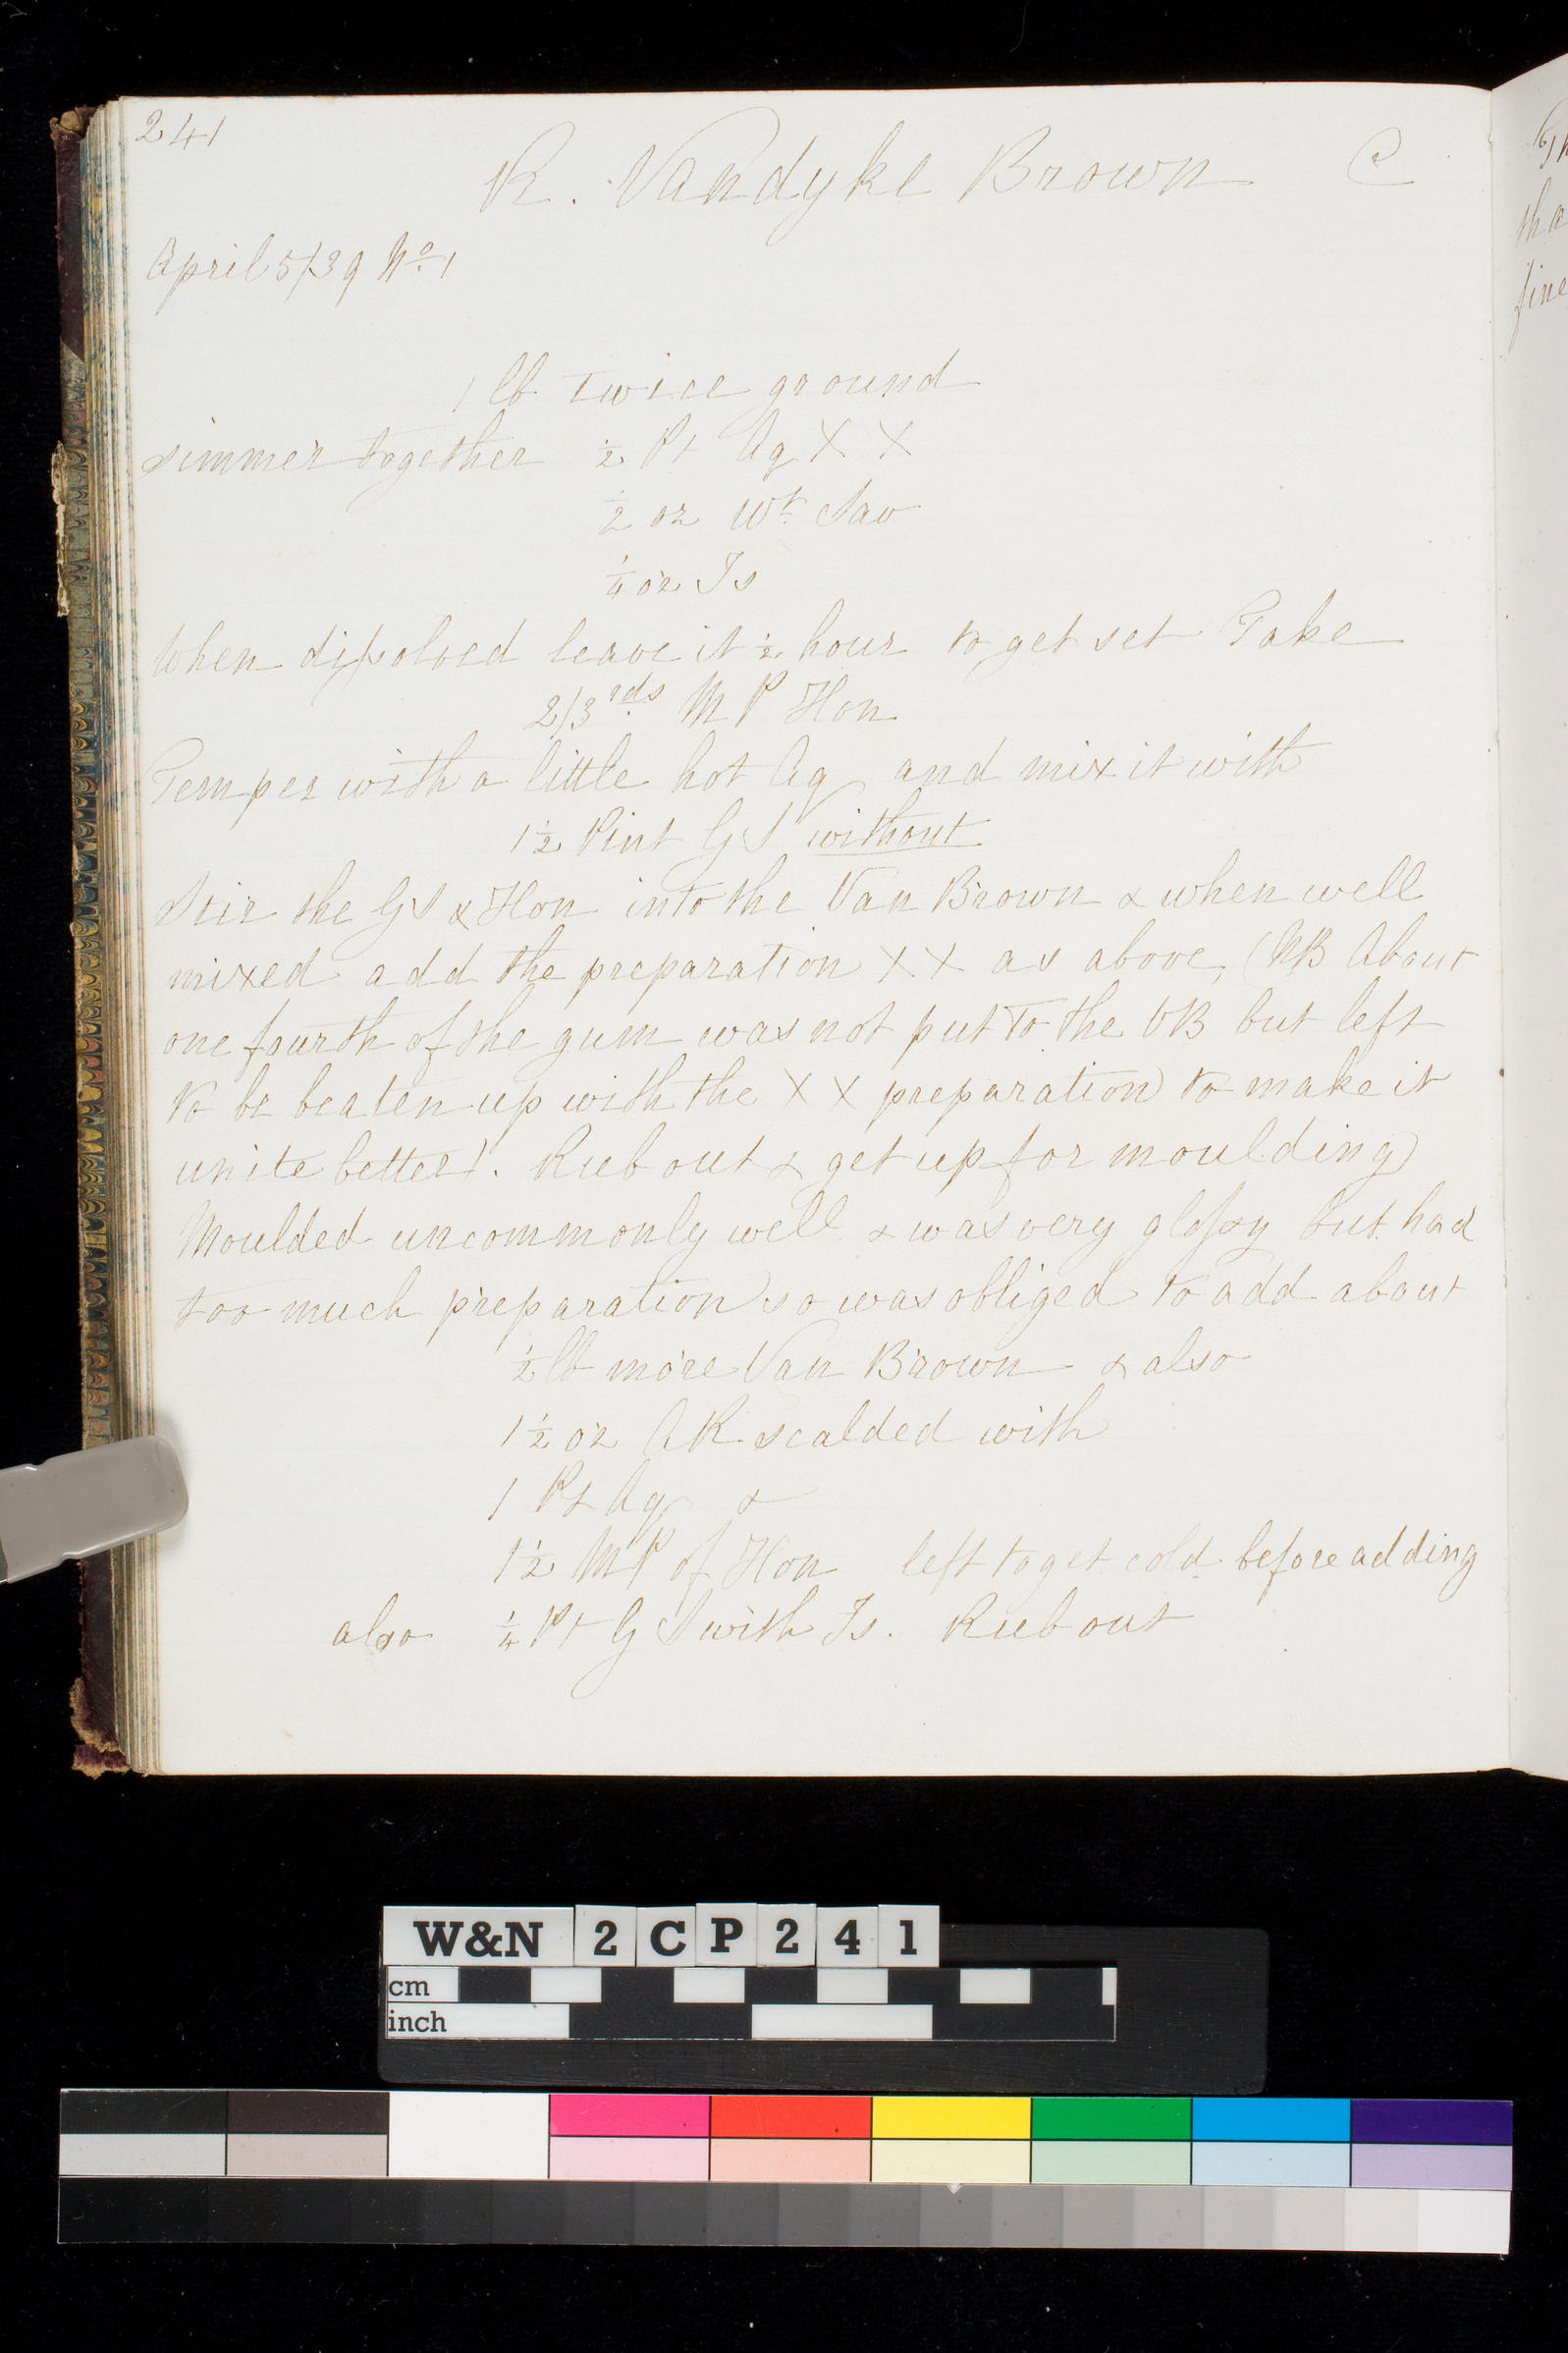 241
R. Vandyke Brown C
April 5/39 No. 1
1 lb twice ground
simmer together ½ Pt Aq X X
½ oz Wt. Sav
¼ oz Is
When dissolved leave it ½ hour to get set Take
2/3rds M P Hon
Temper with a little hot Aq and mix it with
1½ Pint G S without
Stir the G S & Hon into the Van Brown & when well
mixed add the preparation X X as above, (NB About
one fourth of the gum was not put to the VB but left
to be beaten up with the X X preparation to make it
unite better). Rub out & get up for moulding
Moulded uncommonly well & was very glossy but had
too much preparation so was obliged to add about
½ lb more Van Brown & also
1½ oz AR scalded with
1 Pt Aq &
1½ M P of Hon left to get cold before adding
also ¼ Pt G S with Is. Rub out
tha
fine
W&N 2CP241
cm
inch